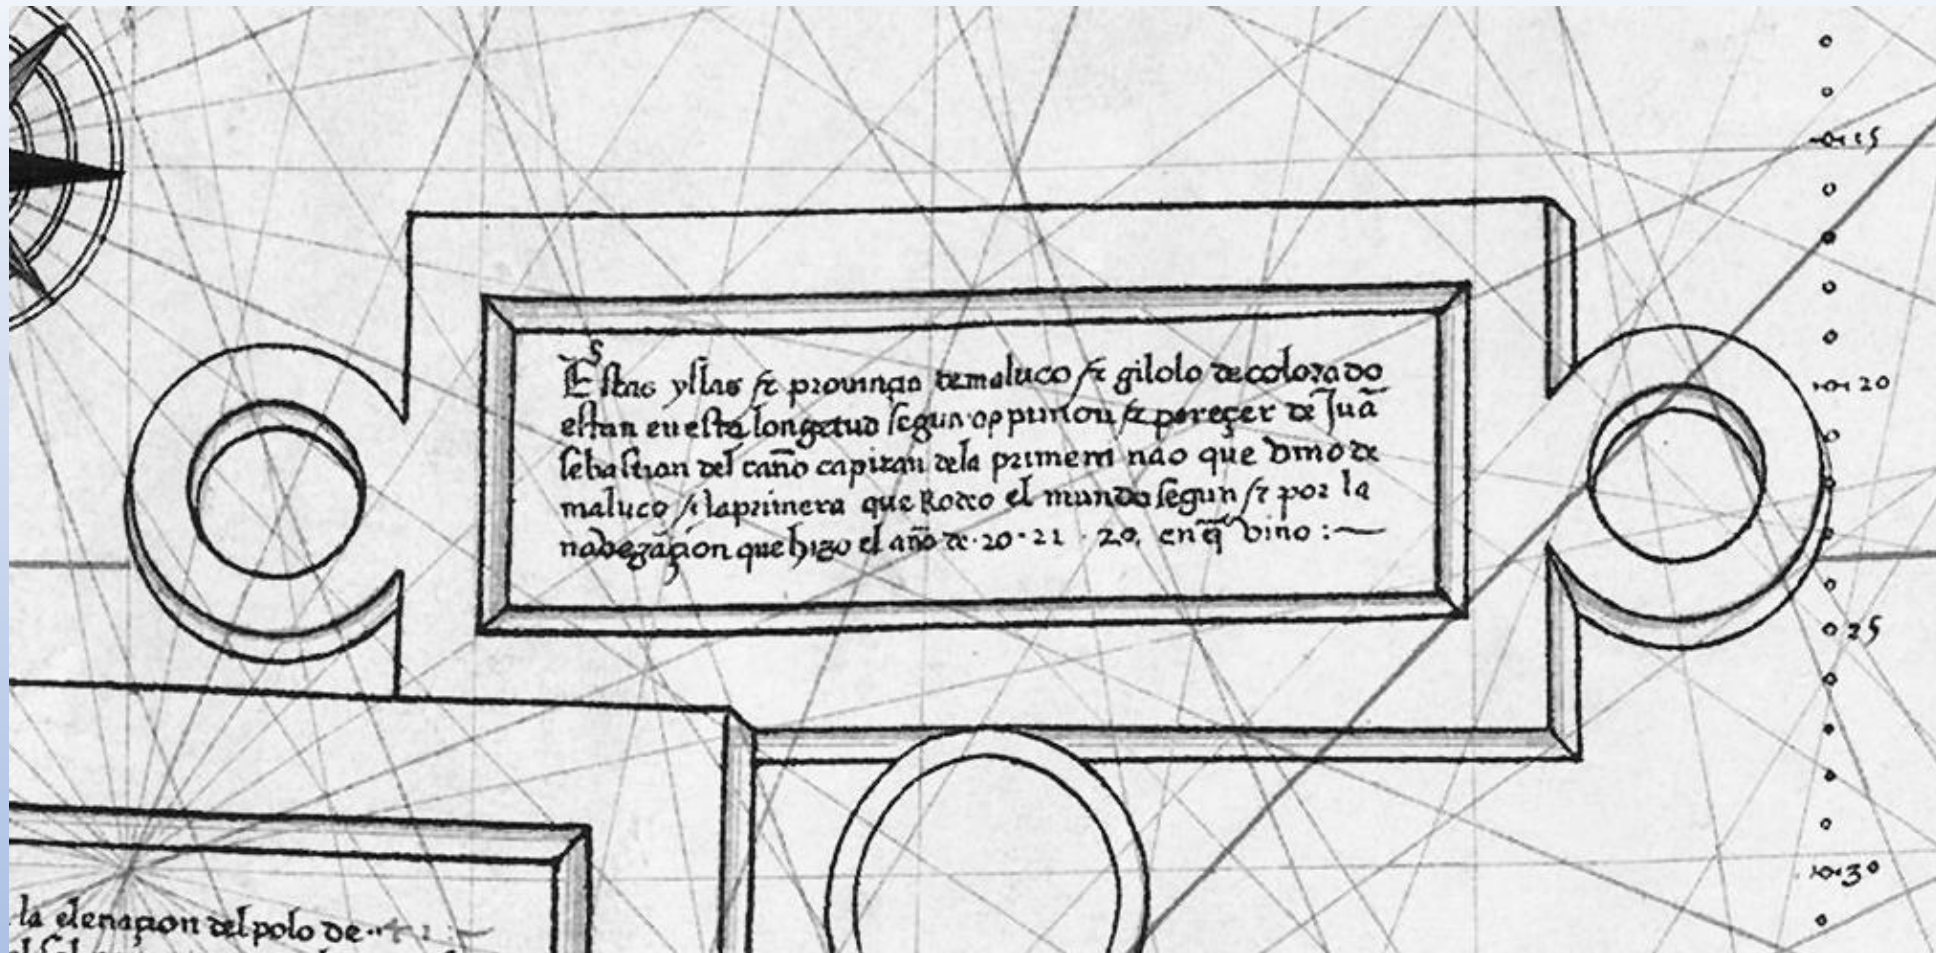 Estas yslas & prouinçia de maluco & gilolo de colorado
estan en esta longetud segun oppinion & pareçer de Juā
sebastian del caño capitan de la primera nao que vino de
maluco & la primera que Rodeo el mundo segun & por la
nabegaçion que hizo el año de · 20 · 21 · 20, en q̄ vino :~
la eleuaçion del polo de
15
20
25
30